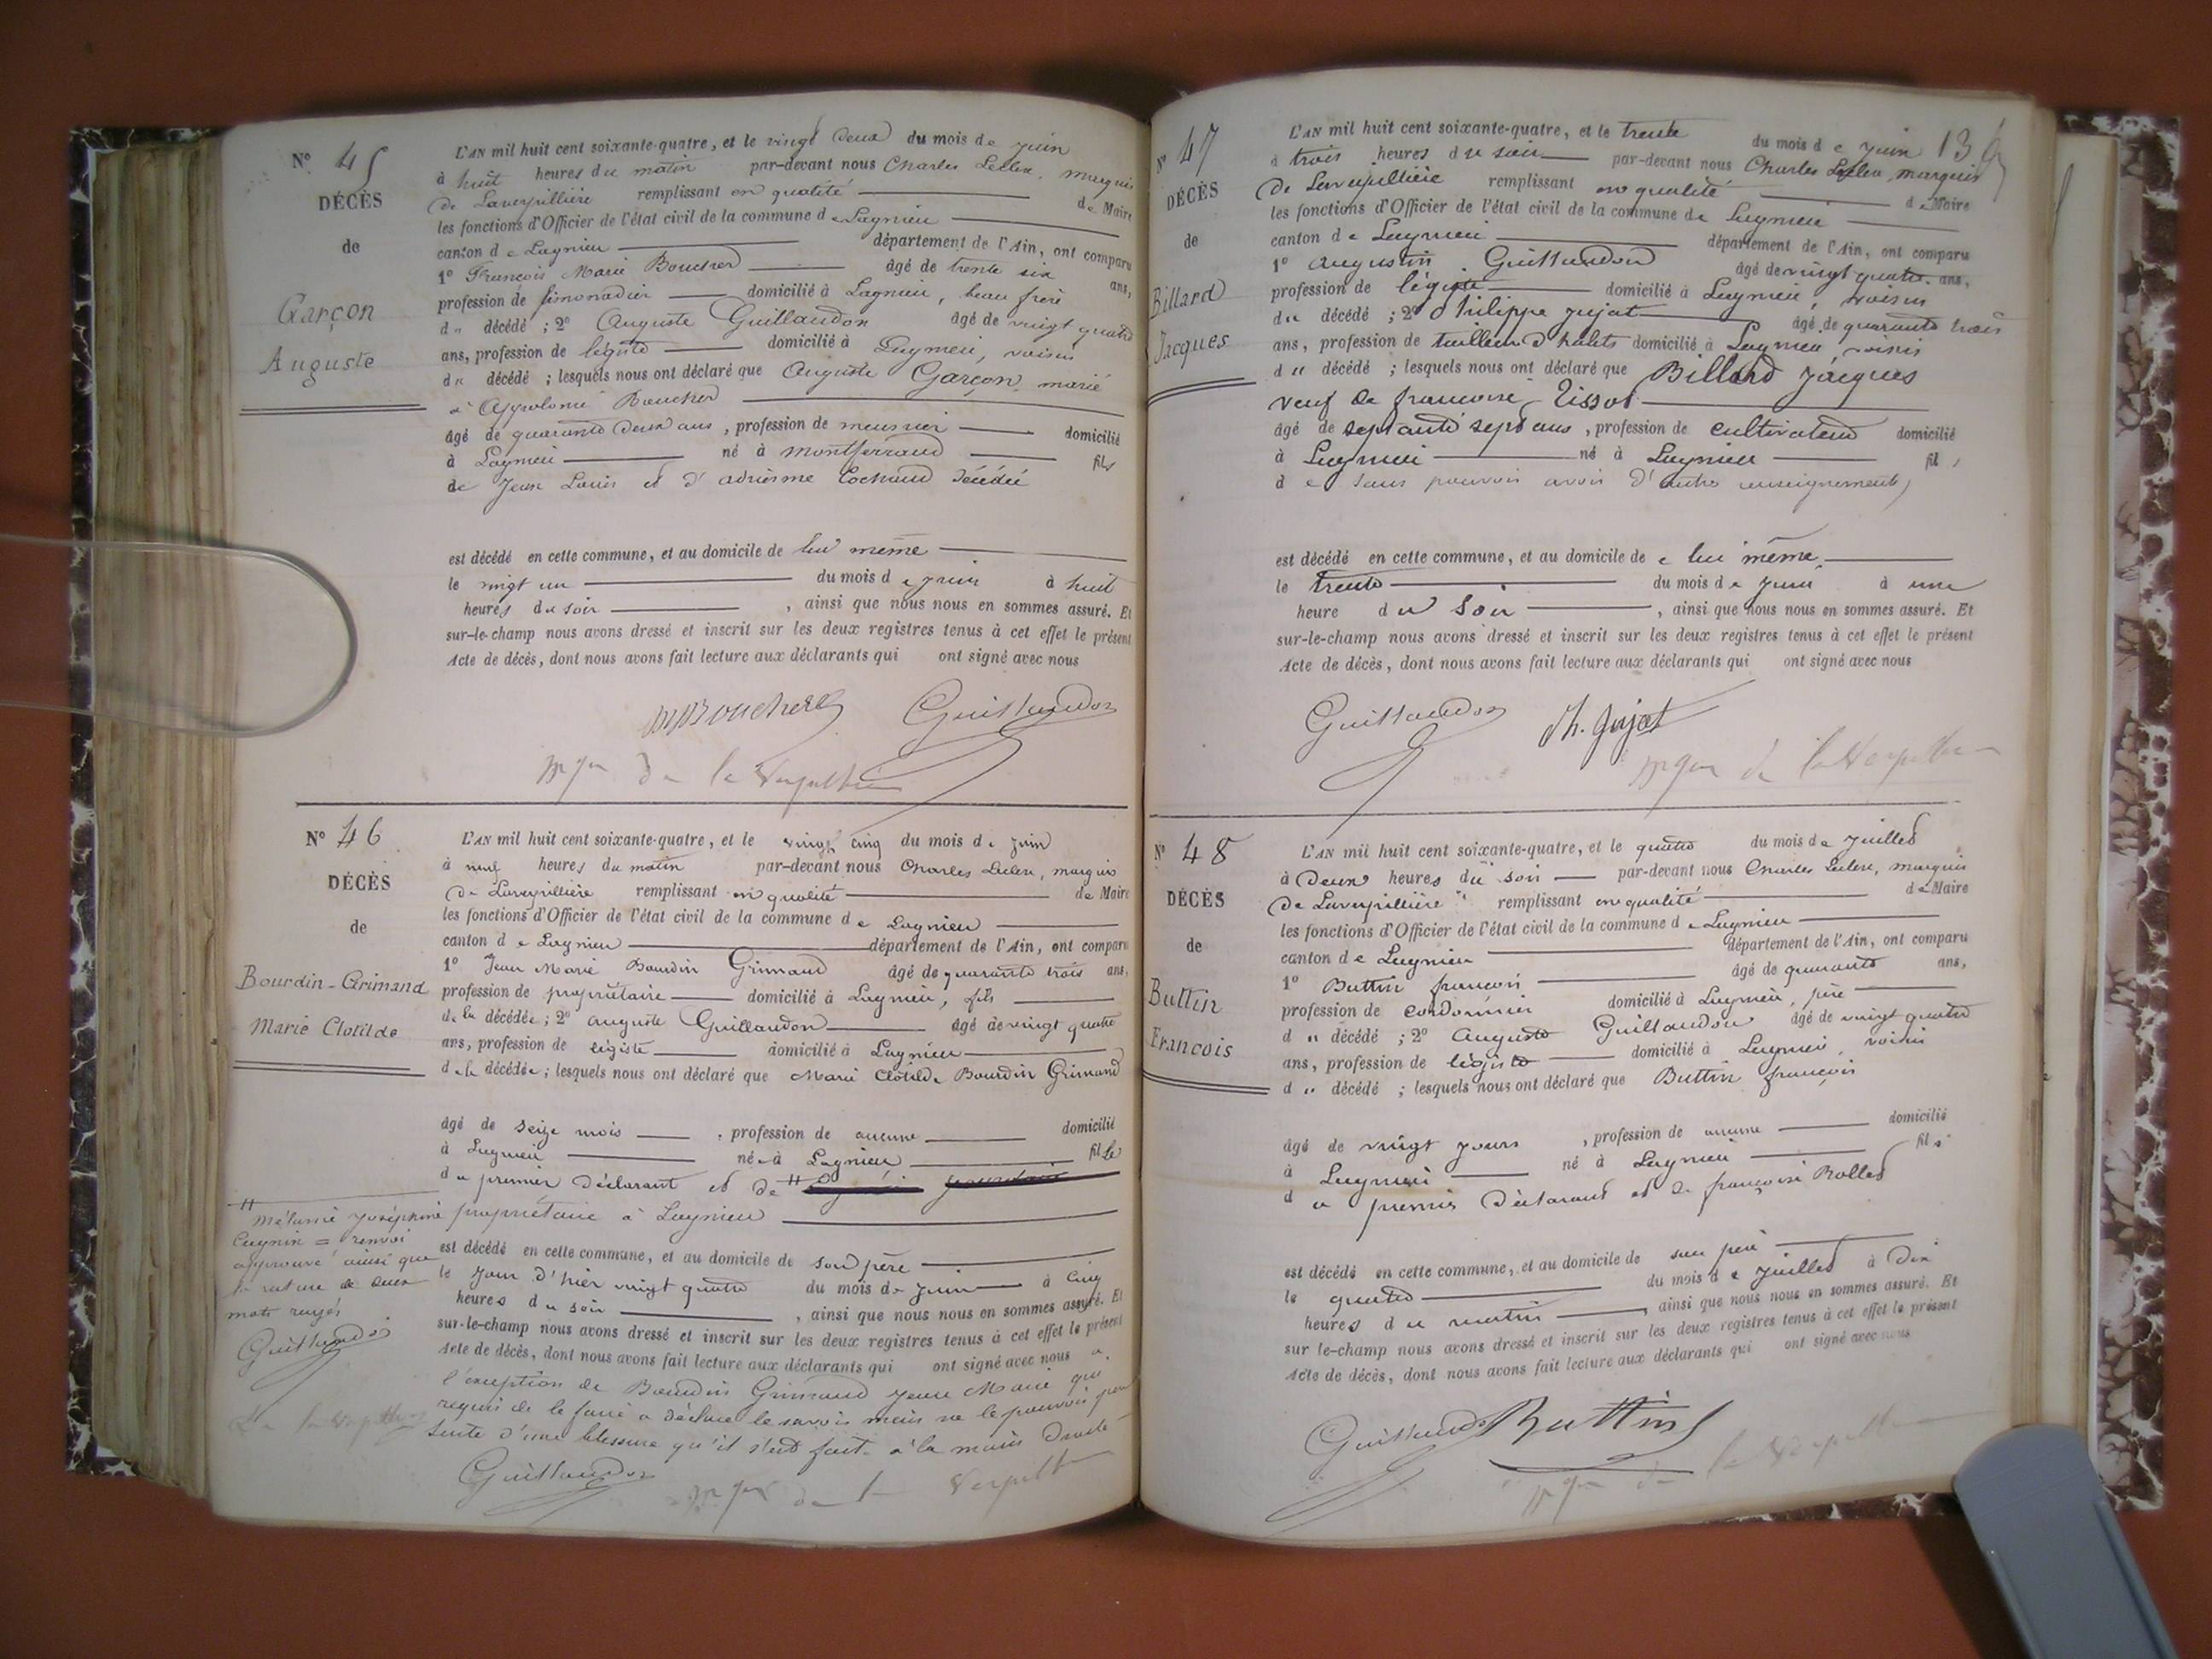 N° 45
DÉCÈS
de
Garçon
Auguste
L'AN mil huit cent soixante-quatre, et le vingt deux du mois de juin
à huit heures du matin par-devant nous Charles Leclerc, marquis
de Laverpillière remplissant en qualité de Maire
les fonctions d'Officier de l'état civil de la commune de Lagnieu
canton de Lagnieu département de l'Ain, ont comparu
1° François Marie Boucher âgé de trente six ans,
profession de limonadier domicilié à Lagnieu, beau frère
du décédé ; 2° Auguste Guillaudon âgé de vingt quatre
ans, profession de légiste domicilié à Lagnieu, voisin
du décédé ; lesquels nous ont déclaré que Auguste Garçon, marié
à Boucher
âgé de quarante deux ans, profession de meunier domicilié
à Lagnieu né à Montferrand fils
de Jean Louis et d'adrienne Cochaud décédé
est décédé en cette commune, et au domicile de lui même
le vingt un du mois de juin à huit
heures du soir, ainsi que nous nous en sommes assuré. Et
sur-le-champ nous avons dressé et inscrit sur les deux registres tenus à cet effet le présent
Acte de décès, dont nous avons fait lecture aux déclarants qui ont signé avec nous
Boucher Guillaudon
de la Verpillière
N° 46
DÉCÈS
de
Bourdin-Grimand
Marie Clotilde
L'AN mil huit cent soixante-quatre, et le vingt cinq du mois de juin
à neuf heures du matin par-devant nous Charles Leclerc, marquis
de Laverpillière remplissant en qualité de Maire
les fonctions d'Officier de l'état civil de la commune de Lagnieu
canton de Lagnieu département de l'Ain, ont comparu
1° Jean Marie Bourdin Grimaud âgé de quarante trois ans,
profession de propriétaire domicilié à Lagnieu, fils
de la décédée ; 2° auguste Guillaudon âgé de vingt quatre
ans, profession de légiste domicilié à Lagnieu
de la décédée ; lesquels nous ont déclaré que Marie Clotilde Bourdin Grimand
âgé de seize mois, profession de aucune domicilié
à Lagnieu née à Lagnieu fille
du premier déclarant et de #
propriétaire à Lagnieu
est décédé en cette commune, et au domicile de son père
le jour d'hier vingt quatre du mois de juin à cinq
heures du soir, ainsi que nous nous en sommes assuré. Et
sur-le-champ nous avons dressé et inscrit sur les deux registres tenus à cet effet le présent
Acte de décès, dont nous avons fait lecture aux déclarants qui ont signé avec nous à
l'exception de Bourdin Grimaud Jean Marie qui
requis de le faire a déclaré le savoir mais ne le pouvoir pour
suite d'une blessure qu'il s'est faite à la main droite
Guillaudon
de la Verpillière
#
Mélanie Joséphine
Cuynin = renvoi
approuvé ainsi que
la rature de deux
mots rayés
Guillaudon
de la Verpillière
136
N° 47
DÉCÈS
de
Billard
Jacques
L'AN mil huit cent soixante-quatre, et le trente du mois de juin
à trois heures du soir par-devant nous Charles Leclerc, marquis
de Laverpillière remplissant en qualité de Maire
les fonctions d'Officier de l'état civil de la commune de Lagnieu
canton de Lagnieu département de l'Ain, ont comparu
1° Augustin Guillaudon âgé de vingt quatre ans,
profession de légiste domicilié à Lagnieu, voisin
du décédé ; 2° Philippe jujat âgé de quarante trois
ans, profession de tailleur d'habits domicilié à Lagnieu, voisin
du décédé ; lesquels nous ont déclaré que Billard Jacques
veuf de francoise Tissot
âgé de septante sept ans, profession de cultivateur domicilié
à Lagnieu né à Lagnieu fils
de sans pouvoir avoir d'autres renseignements
est décédé en cette commune, et au domicile de e lui même
le trente du mois de juin à une
heure du soir, ainsi que nous nous en sommes assuré. Et
sur-le-champ nous avons dressé et inscrit sur les deux registres tenus à cet effet le présent
Acte de décès, dont nous avons fait lecture aux déclarants qui ont signé avec nous
Guillaudon Ph. Jujat
de la Verpillière
N° 48
DÉCÈS
de
Buttin
Francois
L'AN mil huit cent soixante-quatre, et le quatre du mois de juillet
à deux heures du soir par-devant nous Charles Leclerc, marquis
de Laverpillière remplissant en qualité de Maire
les fonctions d'Officier de l'état civil de la commune de Lagnieu
canton de Lagnieu département de l'Ain, ont comparu
1° Buttin françois âgé de quarante ans,
profession de cordonnier domicilié à Lagnieu, père
du décédé ; 2° Auguste Guillaudon âgé de vingt quatre
ans, profession de légiste domicilié à Lagnieu, voisin
du décédé ; lesquels nous ont déclaré que Buttin françois
âgé de vingt jours, profession de aucune domicilié
à Lagnieu né à Lagnieu fils
du premier déclarant et de françoise Rollet
est décédé en cette commune, et au domicile de son père
le quatre du mois de juillet à dix
heures du matin, ainsi que nous nous en sommes assuré. Et
sur le-champ nous avons dressé et inscrit sur les deux registres tenus à cet effet le présent
Acte de décès, dont nous avons fait lecture aux déclarants qui ont signé avec nous
Guillaudon Buttin
de la Verpillière